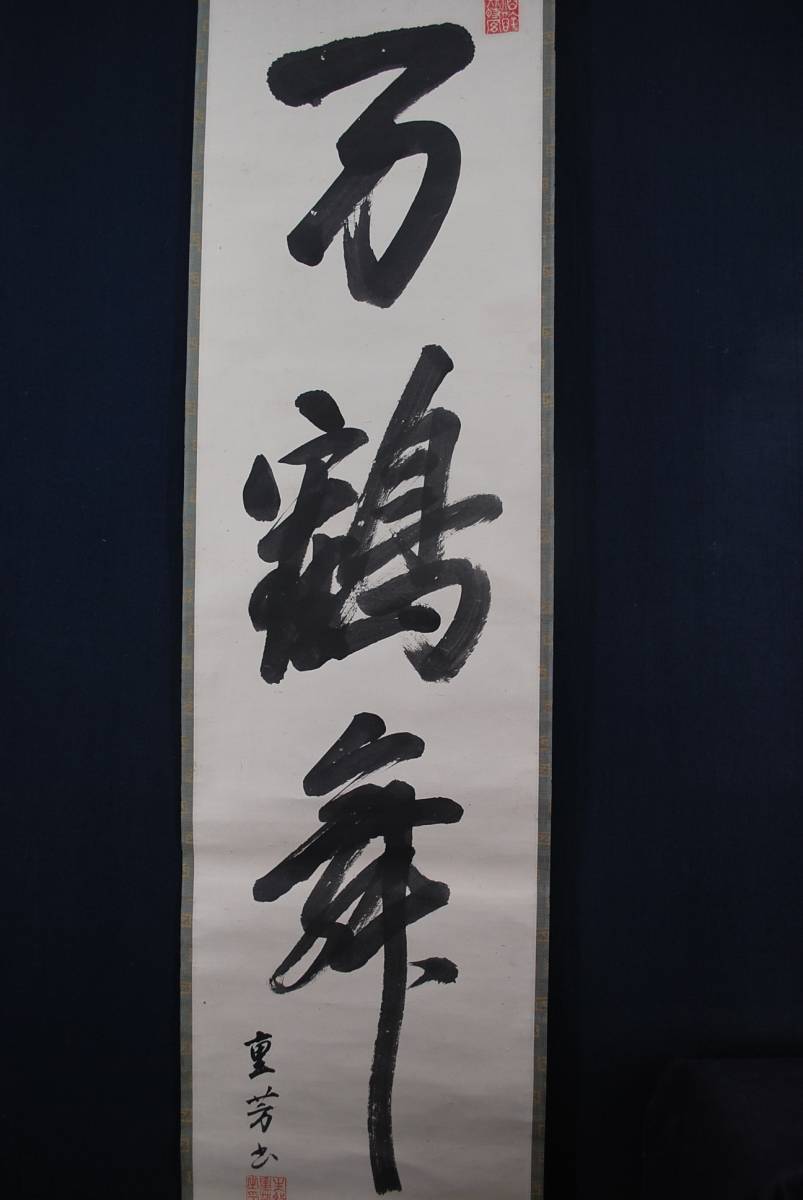 万鶴舞
重芳書